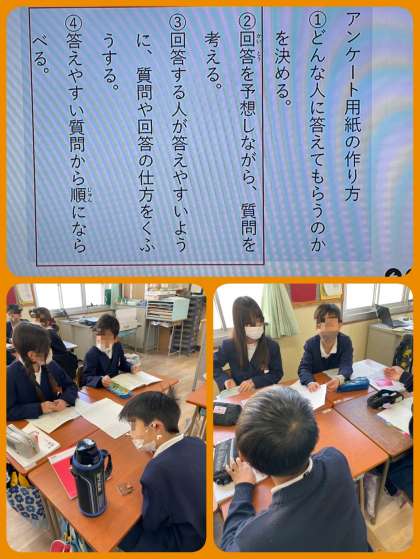 アンケート用紙の作り方
①どんな人に答えてもらうのか
を決める。
②回答を予想しながら、質問を
考える。
③回答する人が答えやすいよう
に、質問や回答の仕方をくふ
うする。
④答えやすい質問から順になら
べる。